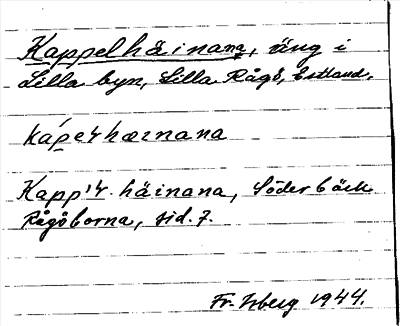 Kappelhäinana, äng i
Lilla byn, Lilla Rågö, Estland.
kápeɫhæɪnana
Kapp'ɫ häinana, Söderbäck
Rågöborna, sid. 7.
Fr. Isberg 1944.